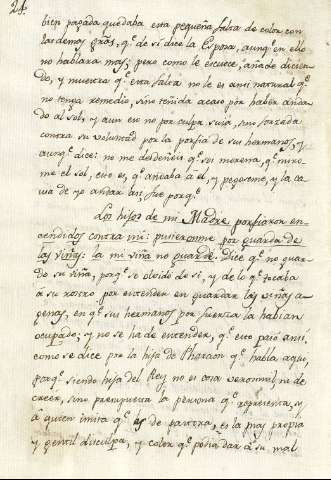 24.
bien pagada quedaba esta pequeña falta de color, con
las demas grãs, q.e de si dice la Esposa, aunq.e en ello
no hablara mas; pero como le escuece, añade dicien-
do, y muestra q.e esta falta no le es ami natural q.e
no tenga remedio, sino teñida acaso por haber anda-
do al sol, y aun eso no por culpa suya, sino forzada
contra su voluntad por la porfia de sus hermanos, y
aunq.e dice: no me desdeñeis q.e su morena, q.e miro-
me el sol, esto es, q.e andaba à el, y pegoseme, y la ca-
usa de yo andar asi fue porq.e
Los hijos de mi Madre porfiaron en-
cendidos contra mi: pusieronme por guarda de
las viñas: la mi viña no guardé. Dice q.e no guar-
do su viña, porq.e se olvidó de si, y de lo q.e tocaba
à su rostro por entender en guardar las viñas a-
genas, en q.e sus hermanos por fuerza la habian
ocupado; y no se ha de entender, q.e esto pasó ansi,
como se dice por la hija de Pharaon q.e habla aqui,
porq.e siendo hija del Rey no es cosa verosimil, ni de
creer, sino presupuesta la persona q.e representa, y
à quien imita q.e es de pastora, es la mas propia
y gentil disculpa, y color q.e podia dar à su mal